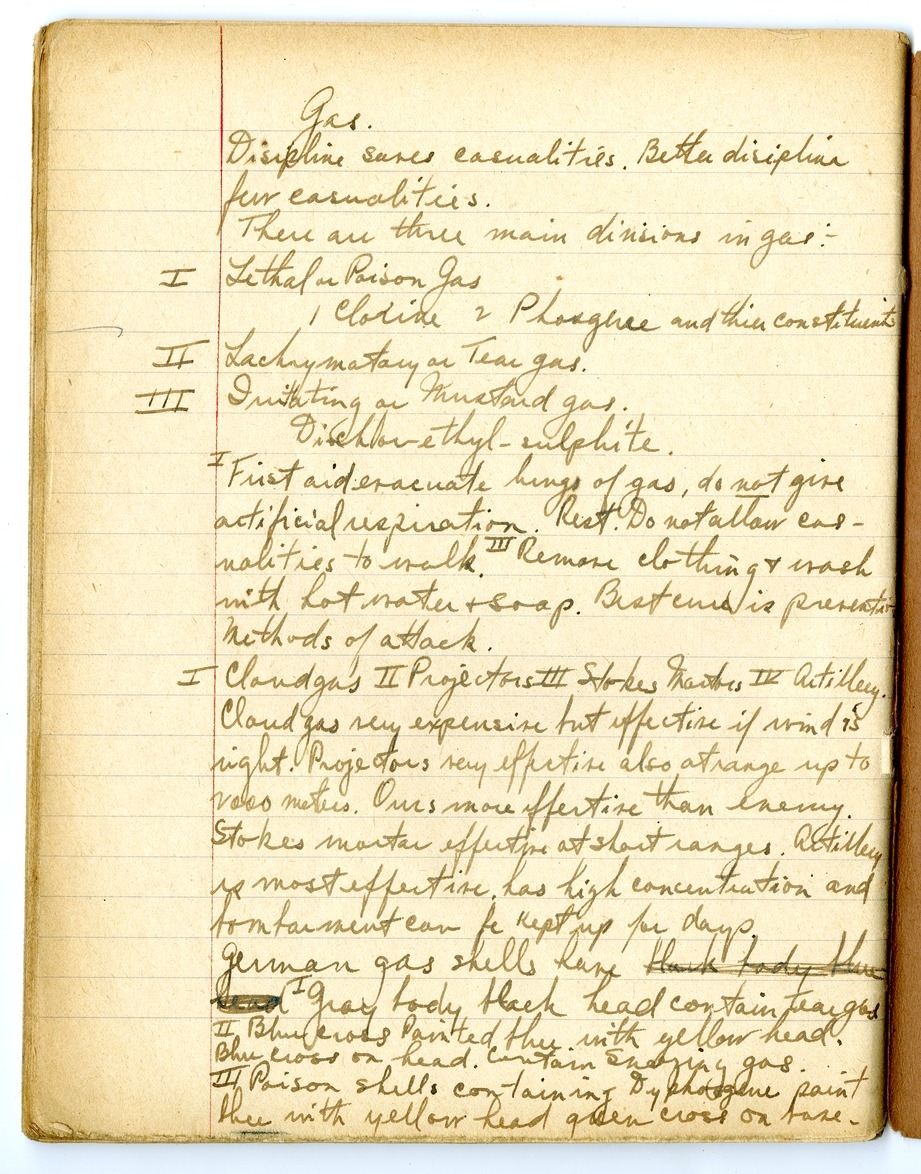 Gas.
Discipline saves casualities. Better discipline
fewr casualities.
There are three main divisions in gas:-
I Lethal or Poison Gas
1 Clorine 2 Phosgene and thier constituents
II Lachrymatory or Tear gas.
III Irritating or Mustard gas.
Dichlor-ethyl-sulphite.
I First aid evacuate lungs of gas, do not give
artificial respiration. Rest. Do not allow cas-
ualities to walk. III Remove clothing & wash
with hot water & soap. Best cure is preventive
Methods of attack.
I Cloud gas II Projectors III Stokes Mortors IV Artillery.
Cloud gas very expensive but effective if wind is
right. Projectors very effective also at range up to
meters. Ours more effective than enemy.
Stokes mortar effective at short ranges. Artillery
is most effective, has high concentration and
bombarment can be kept up for days.
German gas shells have black body blue
head I Gray body black head contain tear gas
II Blue cross Painted blue with yellow head.
Blue cross on head. Contain Sneezing gas.
III Poison shells containing Dyphosgene paint
blue with yellow head green cross on base.